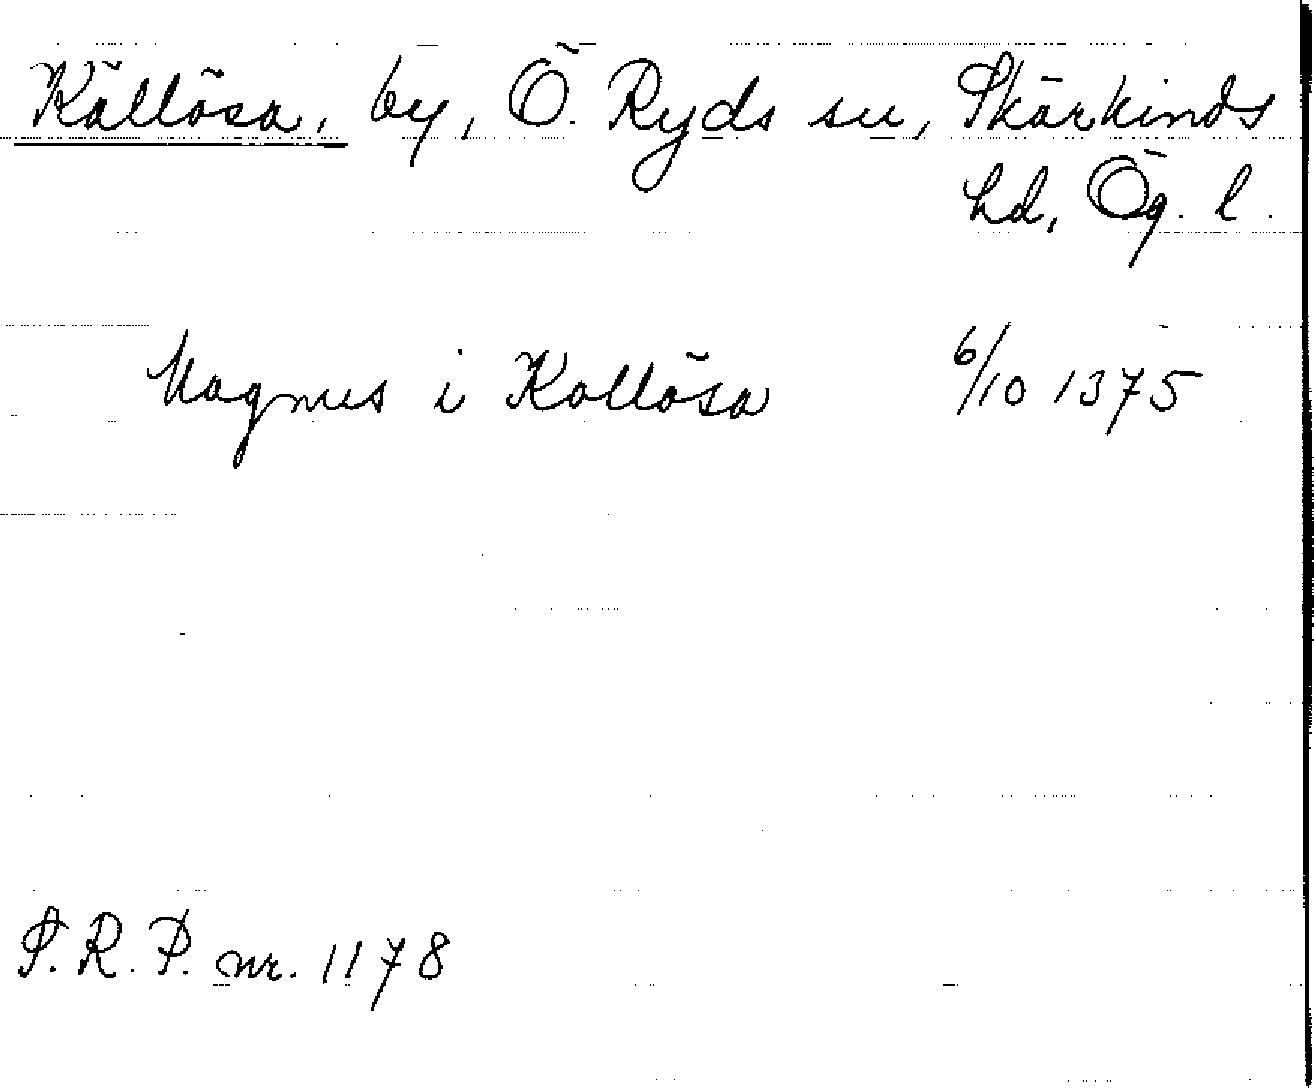 Källösa, by, Ö. Ryds sn, Skärkinds
hd, Ög. l.
Magnus i Kollösa 6/10 1375
S. R. P. nr. 1178